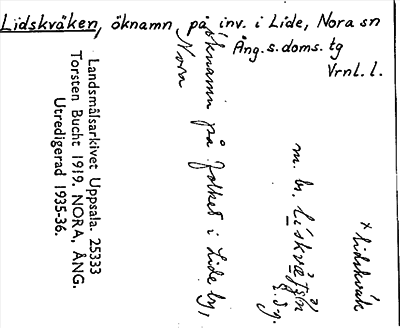 Lidskväken, öknamn på inv. i Lide, Nora sn
Ång. s. doms. tg
Vrnl. l.
× Lidskväk
öknamn på folket i Lide by,
Nora
Landsmålsarkivet Uppsala. 25333
Torsten Bucht 1919. NORA, ÅNG.
Utredigerad 1935-36.